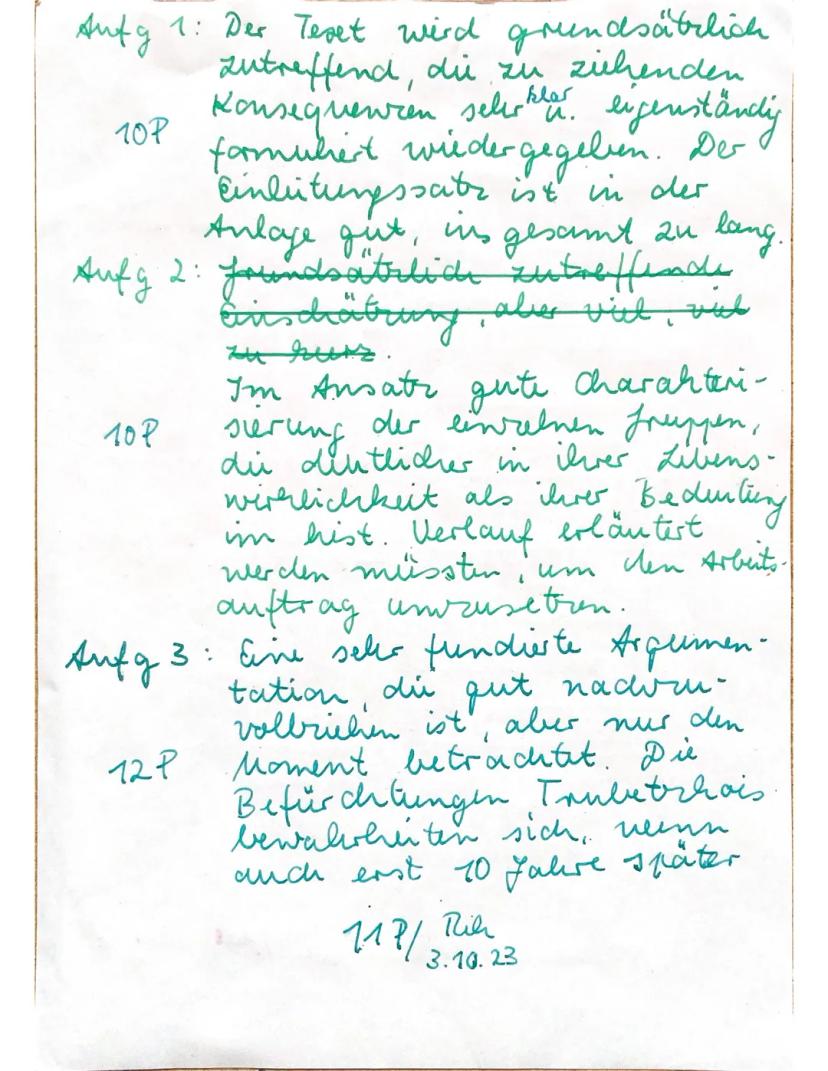 Aufg 1: Der Text wird grundsätzlich
zutreffend, die zu ziehenden
Konsequenzen sehr klar u. eigenständig
10P
formuliert wiedergegeben. Der
Einleitungssatz ist in der
Anlage gut, insgesamt zu lang.
Aufg 2: Grundsätzlich zutreffende
Einschätzung, aber viel, viel
zu kurz.
Im Ansatz gute Charakteri-
10P
sierung der einzelnen Gruppen,
die deutlicher in ihrer Lebens-
wirklichkeit als ihrer Bedeutung
im hist. Verlauf erläutert
werden müssten, um den Arbeits-
auftrag umzusetzen.
Aufg 3: Eine sehr fundierte Argumen-
tation, die gut nachzu-
vollziehen ist, aber nur den
12P
Moment betrachtet. Die
Befürchtungen Trubetzkois
bewahrheiten sich, wenn
auch erst 10 Jahre später
11P/
3.10.23